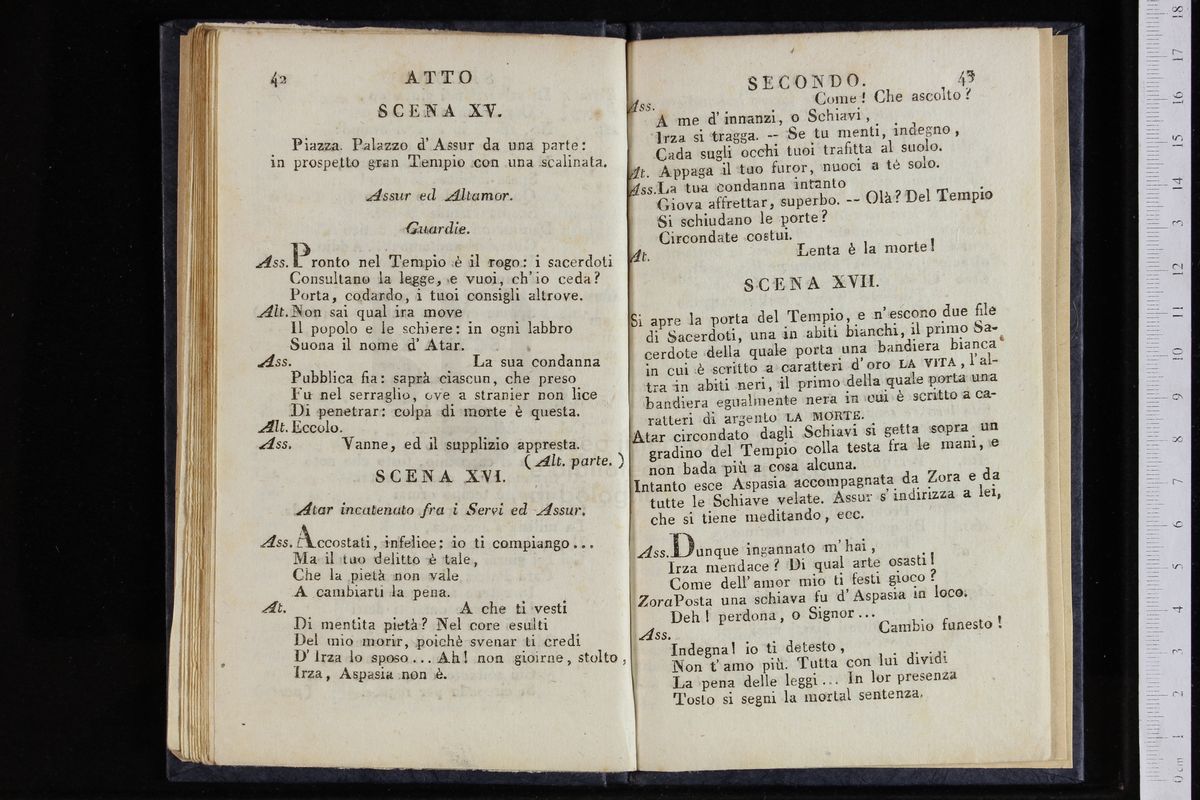 42 ATTO
SCENA XV.
Piazza. Palazzo d' Assur da una parte:
in prospetto gran Tempio con una scalinata.
Assur ed Altamor.
Guardie.
Ass. Pronto nel Tempio è il rogo: i sacerdoti
Consultano la legge, e vuoi, ch'io ceda?
Porta, codardo, i tuoi consigli altrove.
Alt. Non sai qual ira move
Il popolo e le schiere: in ogni labbro
Suona il nome d' Atar.
Ass. La sua condanna
Pubblica fia: saprà ciascun, che preso
Fu nel serraglio, ove a stranier non lice
Di penetrar: colpa di morte è questa.
Alt. Eccolo.
Ass. Vanne, ed il supplizio appresta.
(Alt. parte.)
SCENA XVI.
Atar incatenato fra i Servi ed Assur.
Ass. Accostati, infelice: io ti compiango...
Ma il tuo delitto è tale,
Che la pietà non vale
A cambiarti la pena.
At. A che ti vesti
Di mentita pietà? Nel core esulti
Del mio morir, poichè svenar ti credi
D' Irza lo sposo... Ah! non gioirne, stolto,
Irza, Aspasia non è.
SECONDO. 43
Ass. Come! Che ascolto?
A me d'innanzi, o Schiavi,
Irza si tragga. -- Se tu menti, indegno,
Cada sugli occhi tuoi trafitta al suolo.
At. Appaga il tuo furor, nuoci a te solo.
Ass. La tua condanna intanto
Giova affrettar, superbo. -- Olà? Del Tempio
Si schiudano le porte?
Circondate costui.
At. Lenta è la morte!
SCENA XVII.
Si apre la porta del Tempio, e n'escono due file
di Sacerdoti, una in abiti bianchi, il primo Sa-
cerdote della quale porta una bandiera bianca
in cui è scritto a caratteri d'oro LA VITA, l'al-
tra in abiti neri, il primo della quale porta una
bandiera egualmente nera in cui è scritto a ca-
ratteri di argento LA MORTE.
Atar circondato dagli Schiavi si getta sopra un
gradino del Tempio colla testa fra le mani, e
non bada più a cosa alcuna.
Intanto esce Aspasia accompagnata da Zora e da
tutte le Schiave velate. Assur s'indirizza a lei,
che si tiene meditando, ecc.
Ass. Dunque ingannato m'hai,
Irza mendace? Di qual arte osasti!
Come dell'amor mio ti festi gioco?
Zora Posta una schiava fu d'Aspasia in loco.
Deh! perdona, o Signor...
Ass. Cambio funesto!
Indegna! io ti detesto,
Non t'amo più. Tutta con lui dividi
La pena delle leggi... In lor presenza
Tosto si segni la mortal sentenza.
0 cm 1 2 3 4 5 6 7 8 9 10 11 12 13 14 15 16 17 18